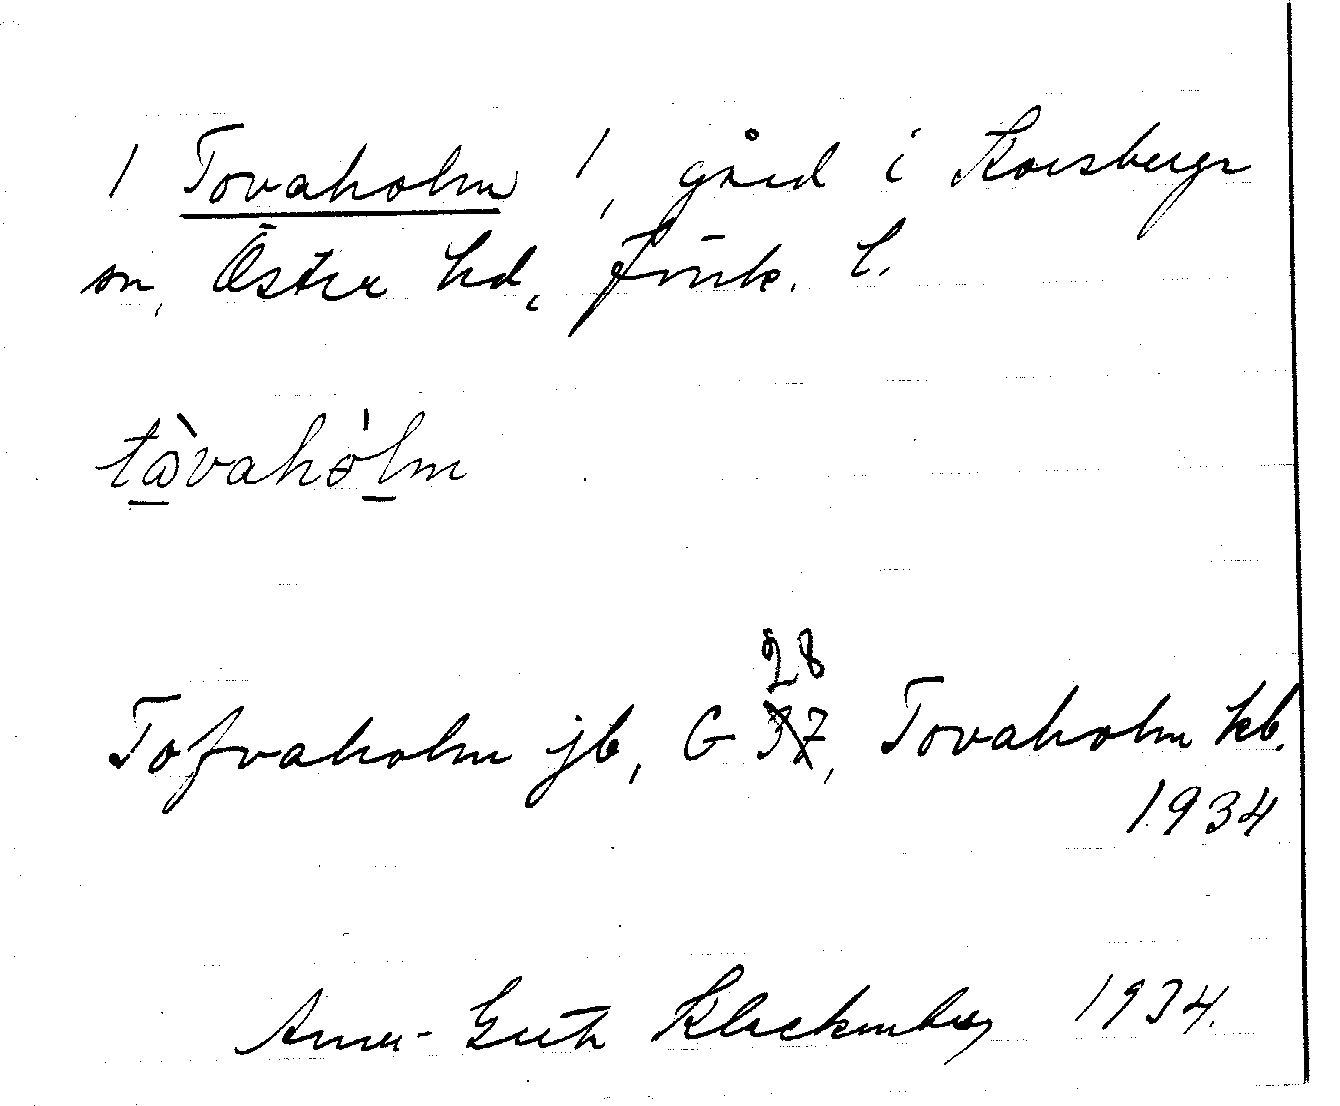 / Tovaholm /, gård i Korsberga
sn, Östra hd, Jönk. l.
tòvahólm
28
Tofvaholm jb, G 37, Tovaholm kb.
1934
Anna-Greta Klackenberg 1934.